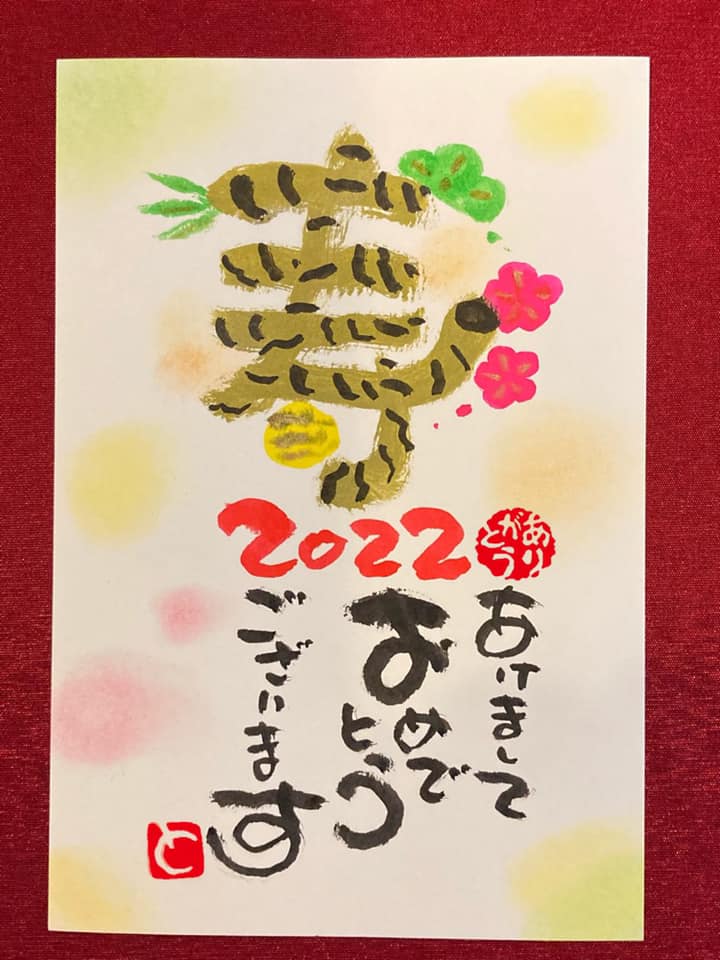 寿
2022
ありがとう
あけまして
おめでとう
ございます
と